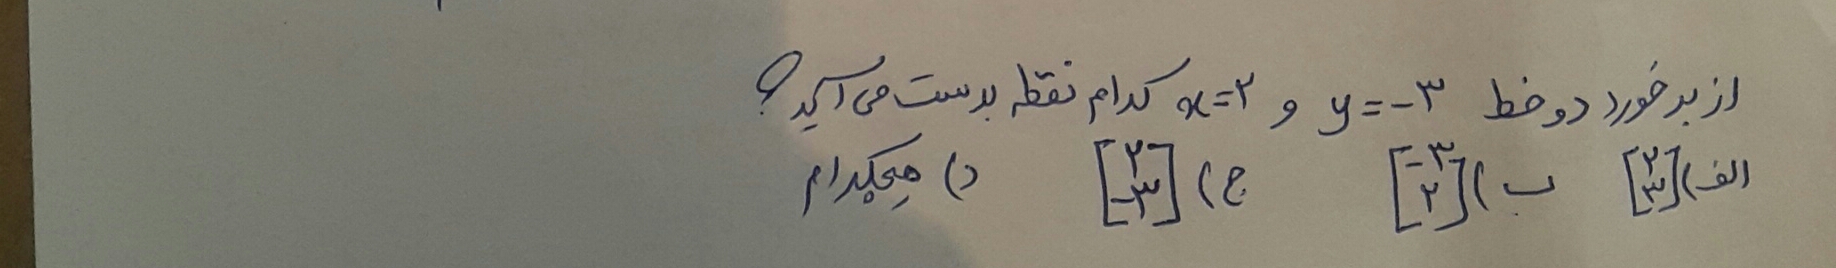 از برخورد دو خط y = -۳ و x = ۲ کدام نقطه بدست می آید؟
الف) [۲ ۳] ب) [-۳ ۲] ج) [۲ -۳] د) هیچکدام